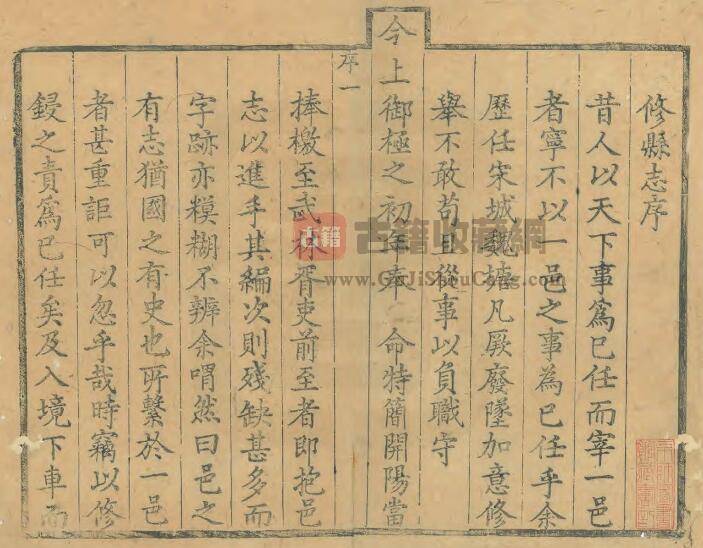 修縣志序
昔人以天下事為已任而宰一邑
者寧不以一邑之事為已任乎余
歷任宋城魏 凡厥廢墜加意修
舉不敢苟且從事以負職守
今上御極之初年奉 命特簡開陽當
序一
捧檄至武林胥吏前至者即抱邑
志以進手其編次則殘缺甚多而
字跡亦糢糊不辨余喟然曰邑之
有志猶國之有史也所繫於一邑
者甚重詎可以忽乎哉時竊以修
鋟之責為已任矣及入境下車而
古籍
古籍收藏網
GuJiShouCang.com